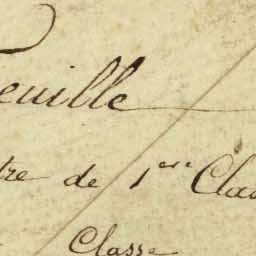 euille
tre de 1ere Clas
Classe